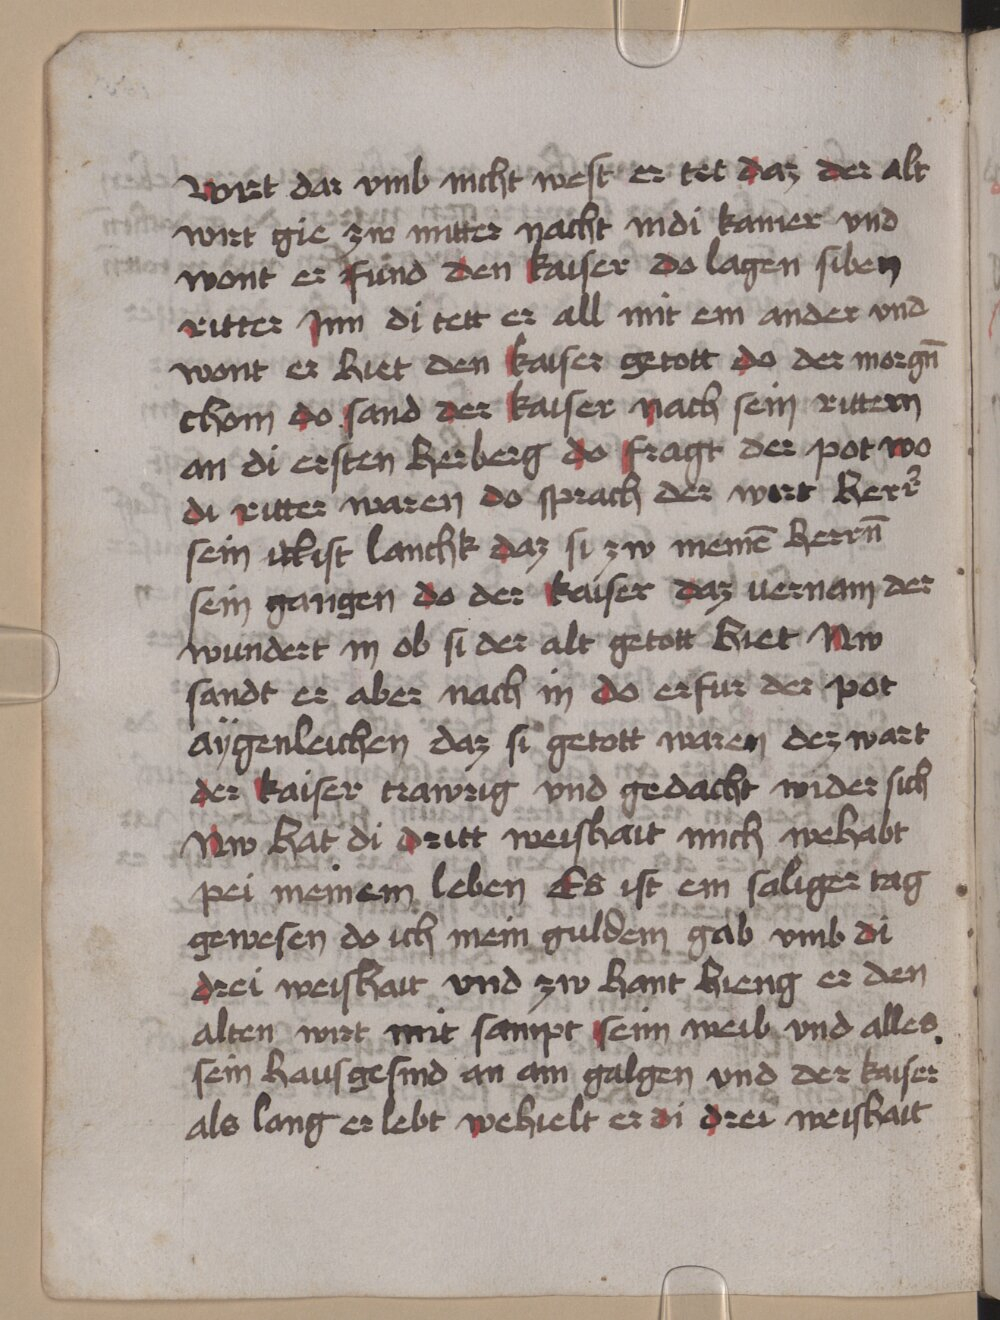 Wirt dar vmb nicht west er tet daz der alt
wirt gie zw mitter nacht indi kamer vnd
wont er fund den kaiser do lagen siben
ritter Inn di tett er all mit ein ander vnd
wont er hiet den kaiser getott do der morgn̄
chom do sand der kaiser nach sein rittern
an di ersten herberg do fragt der pot wo
di ritter waren do sprach der wirt herr̉
sein ist lanchk daz si zw meinē herrn̄
sein gangen do der kaiser daz uernam der
wundert in ob si der alt getott hiet Nw
sandt er aber nach in do erfur der pot
aÿgenleichen daz si getott waren dez wart
der kaiser trawrig vnd gedacht wider sich
Nw hat di dritt weishait mich wehabt
pei meinem leben Es ist ein saliger tag
gewesen do ich mein guldein gab vmb di
drei weishait vnd zw hant hieng er den
alten wirt mit sampt seim weib vnd alles
sein hausgesind an ain galgen vnd der kaiser
als lang er lebt wehielt er di drei weishait